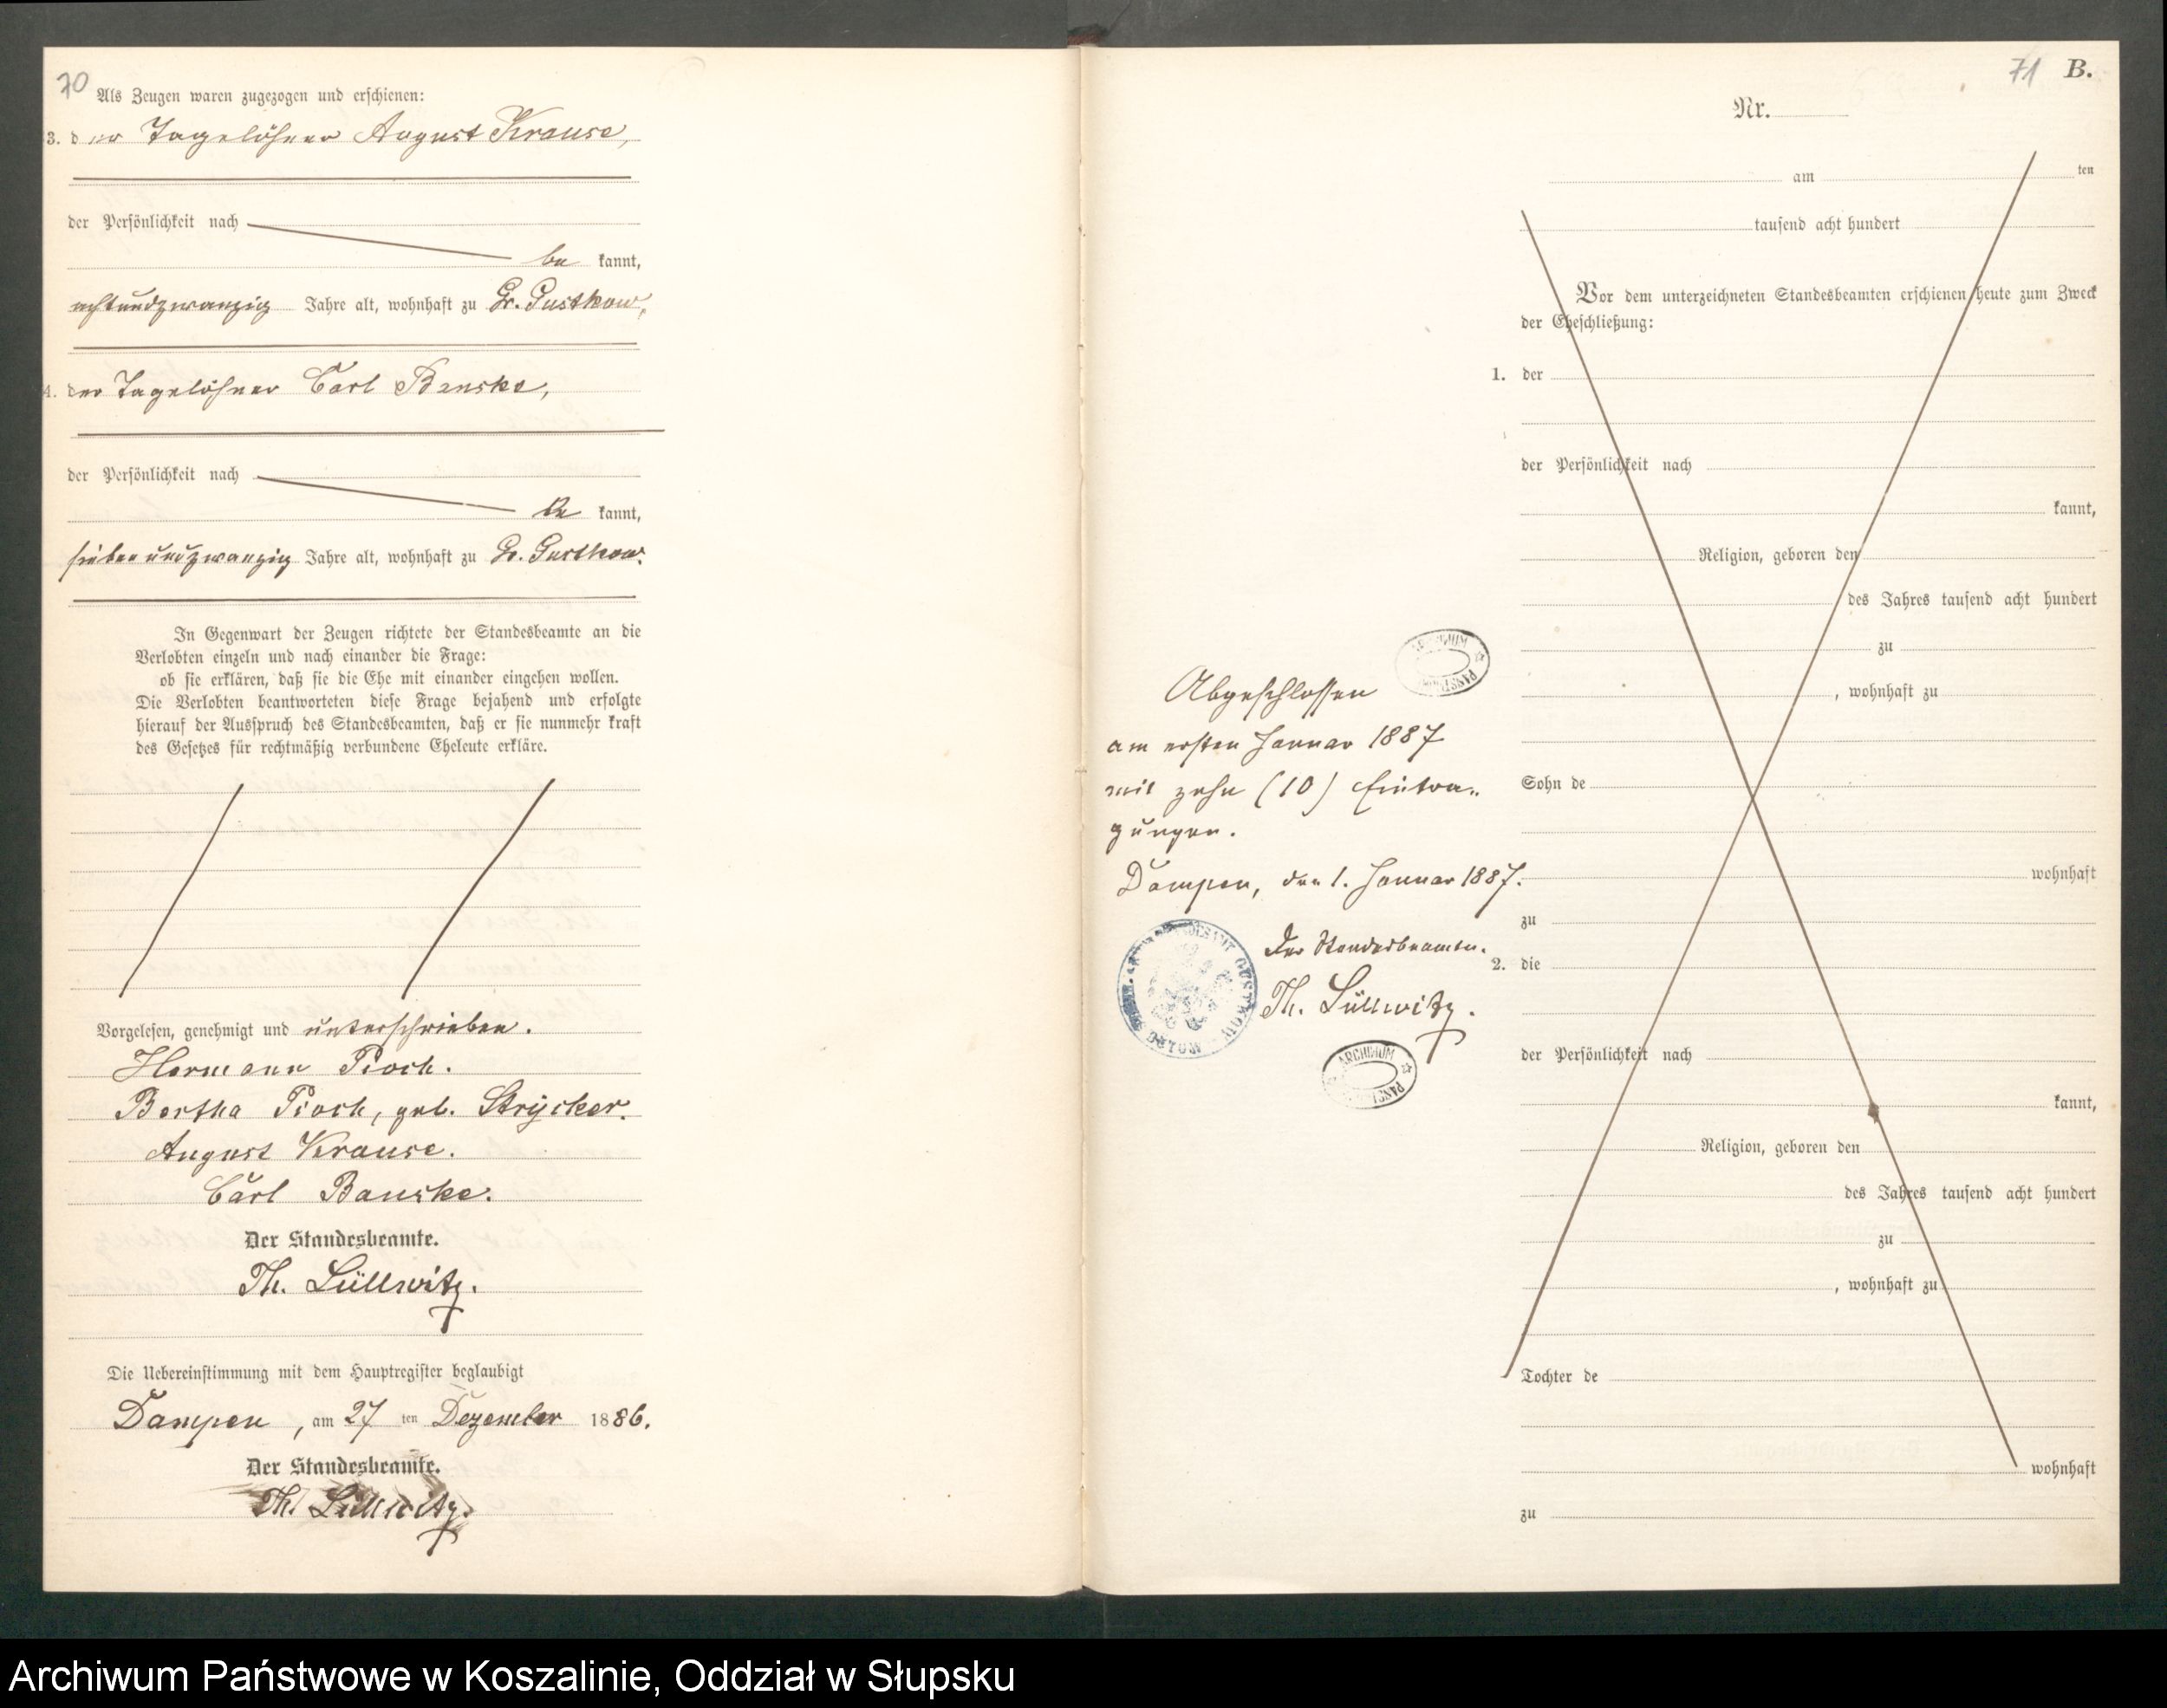 70
Als Zeugen waren zugezogen und erschienen:
3. der Tagelöhner August Krause,
der Persönlichkeit nach
be kannt,
achtundzwanzig Jahre alt, wohnhaft zu Gr. Gustkow,
4. der Tagelöhner Carl Banske,
der Persönlichkeit nach
be kannt,
siebenundzwanzig Jahre alt, wohnhaft zu Gr. Gustkow.
In Gegenwart der Zeugen richtete der Standesbeamte an die
Verlobten einzeln und nach einander die Frage:
ob sie erklären, daß sie die Ehe mit einander eingehen wollen.
Die Verlobten beantworteten diese Frage bejahend und erfolgte
hierauf der Ausspruch des Standesbeamten, daß er sie nunmehr kraft
des Gesetzes für rechtmäßig verbundene Eheleute erkläre.
Vorgelesen, genehmigt und unterschrieben.
Hermann Pioch.
Bertha Pioch, geb. Strÿcker.
August Krause.
Carl Banske.
Der Standesbeamte.
Th. Lüllwitz.
Die Uebereinstimmung mit dem Hauptregister beglaubigt
Dampen, am 27 ten Dezember 1886.
Der Standesbeamte.
Th. Lüllwitz.
71 B.
Nr.
am ten
tausend acht hundert
Vor dem unterzeichneten Standesbeamten erschienen heute zum Zweck
der Eheschließung:
1. der
der Persönlichkeit nach
kannt,
Religion, geboren den
des Jahres tausend acht hundert
zu
, wohnhaft zu
Sohn de
wohnhaft
zu
2. die
der Persönlichkeit nach
kannt,
Religion, geboren den
des Jahres tausend acht hundert
zu
, wohnhaft zu
Tochter de
wohnhaft
zu
ARCHIWUM
Abgeschlossen
am ersten Januar 1887
mit zehn (10) Eintra-
gungen.
Dampen, den 1. Januar 1887.
Der Standesbeamte.
Th. Lüllwitz.
GUSTKOW
BÜTOW
ARCHIWUM
Archiwum Państwowe w Koszalinie, Oddział w Słupsku